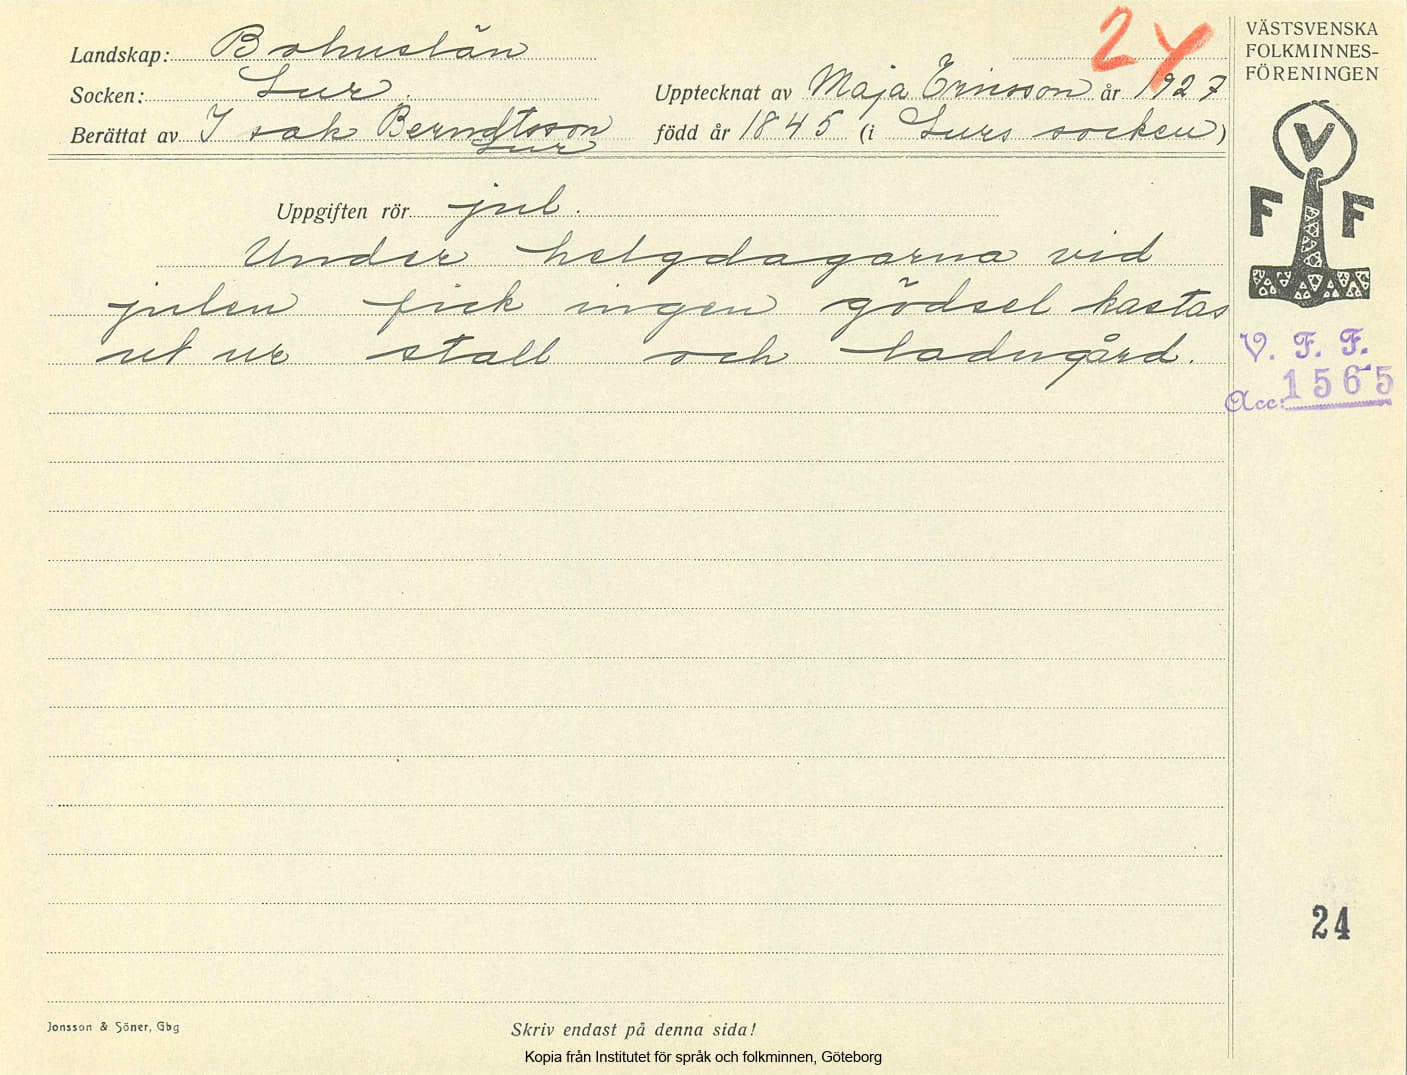 24
Landskap: Bohuslän
Socken: Lur
Upptecknat av Maja Ericsson år 1927
Berättat av Isak Berndtsson
Lur
född år 1845 (i Lurs socken)
Uppgiften rör jul.
Under helgdagarna vid
julen fick ingen gödsel kastas
ut ur stall och ladugård.
VÄSTSVENSKA
FOLKMINNES-
FÖRENINGEN
V
F F
V. F. F.
Acc: 1565
24
Jonsson & Söner, Gbg
Skriv endast på denna sida!
Kopia från Institutet för språk och folkminnen, Göteborg